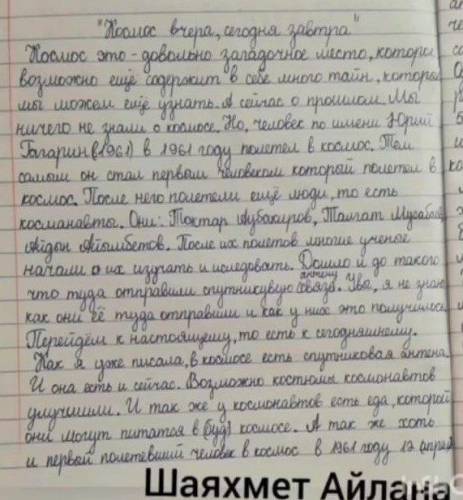 "Космос вчера, сегодня завтра"
Космос это - довольно загадочное место, которы
возможно ещё содержит в себе много тайн, которые
мы можем ещё узнать. А сейчас о прошлом. Мы
ничего не знали о космосе. Но, человек по имени Юрий
Гагарин (1961) в 1961 году полетел в космос. Тем
самым он стал первым человеком который полетел в
космос. После него полетели ещё люди, то есть
косманавты. Они: Токтар Аубакиров, Талгат Мусабаев,
Айдын Айымбетов. После их полетов многие ученые
начали их изучать и иследовать. Дошло и до такого
что туда отправили спутникувую антену связь. я не знаю
как они её туда отправили и как у них это получилось
Перейдём к настоящему, то есть к сегодняшнему.
Как я уже писала, в космосе есть спутниковая антена.
И она есть и сейчас. Возможно костюмы космонавтов
улучшили. И так же у космонавтов есть еда, которой
они могут питатся в космосе. А так же хоть
и первый полетевший человек в космос в 1961 году 12 апреля
Шаяхмет Айлана